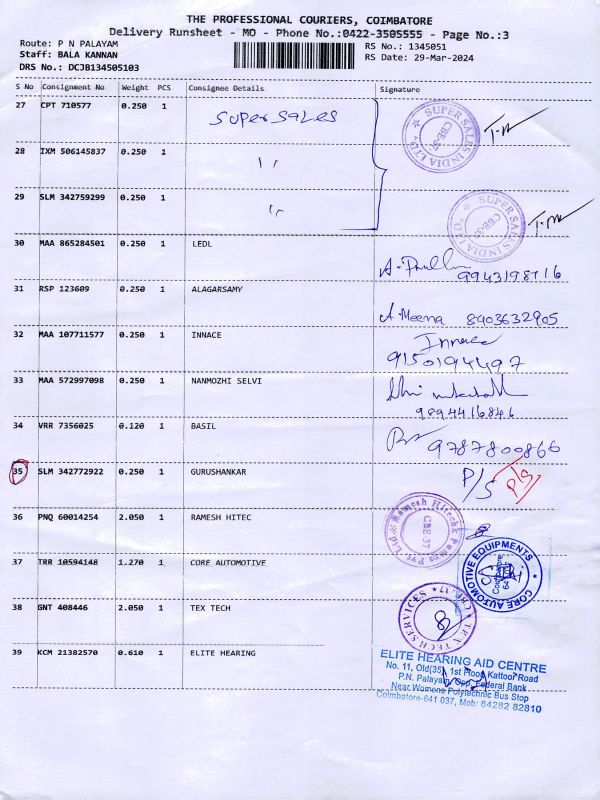 THE PROFESSIONAL COURIERS, COIMBATORE
Delivery Runsheet - MO - Phone No.:0422-3505555 - Page No.:3
Route: P N PALAYAM
RS No.: 1345051
Staff: BALA KANNAN
RS Date: 29-Mar-2024
DRS No.: DCJB134505103
S No Consignment No Weight PCS Consignee Details Signature
27 CPT 710577 0.250 1 SUPER SALES
SUPER SALES INDIA LTD. CBE-37
28 IXM 506145837 0.250 1 ''
29 SLM 342759299 0.250 1 ''
SUPER SALES INDIA LTD. CBE-37
30 MAA 865284501 0.250 1 LEDL
9943198716
31 RSP 123609 0.250 1 ALAGARSAMY
A.Meena 8903632905
32 MAA 107711577 0.250 1 INNACE
Innace
9150194497
33 MAA 572997098 0.250 1 NANMOZHI SELVI
9894416846
34 VRR 7356025 0.120 1 BASIL
9787800866
35 SLM 342772922 0.250 1 GURUSHANKAR
P/S P/S
36 PNQ 60014254 2.050 1 RAMESH HITEC
Ramesh Hitechk Pumps Pvt. Ltd. CBE-37
37 TRR 10594148 1.270 1 CORE AUTOMOTIVE
CORE AUTOMOTIVE EQUIPMENTS
38 GNT 408446 2.050 1 TEX TECH
TEX TECH SERVICES CBE-37
39 KCM 21382570 0.610 1 ELITE HEARING
ELITE HEARING AID CENTRE
No. 11, Old(35), 1st Floor, Kattoor Road
P.N. Palayam, Opp. Federal Bank
Near Womens Polytechnic Bus Stop
Coimbatore-641 037, Mob: 84282 82810